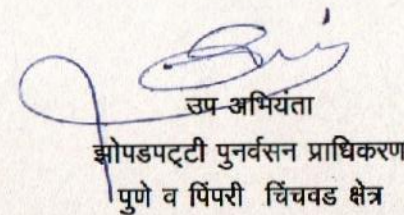 उप अभियंता
झोपडपट्टी पुनर्वसन प्राधिकरण
पुणे व पिंपरी चिंचवड क्षेत्र